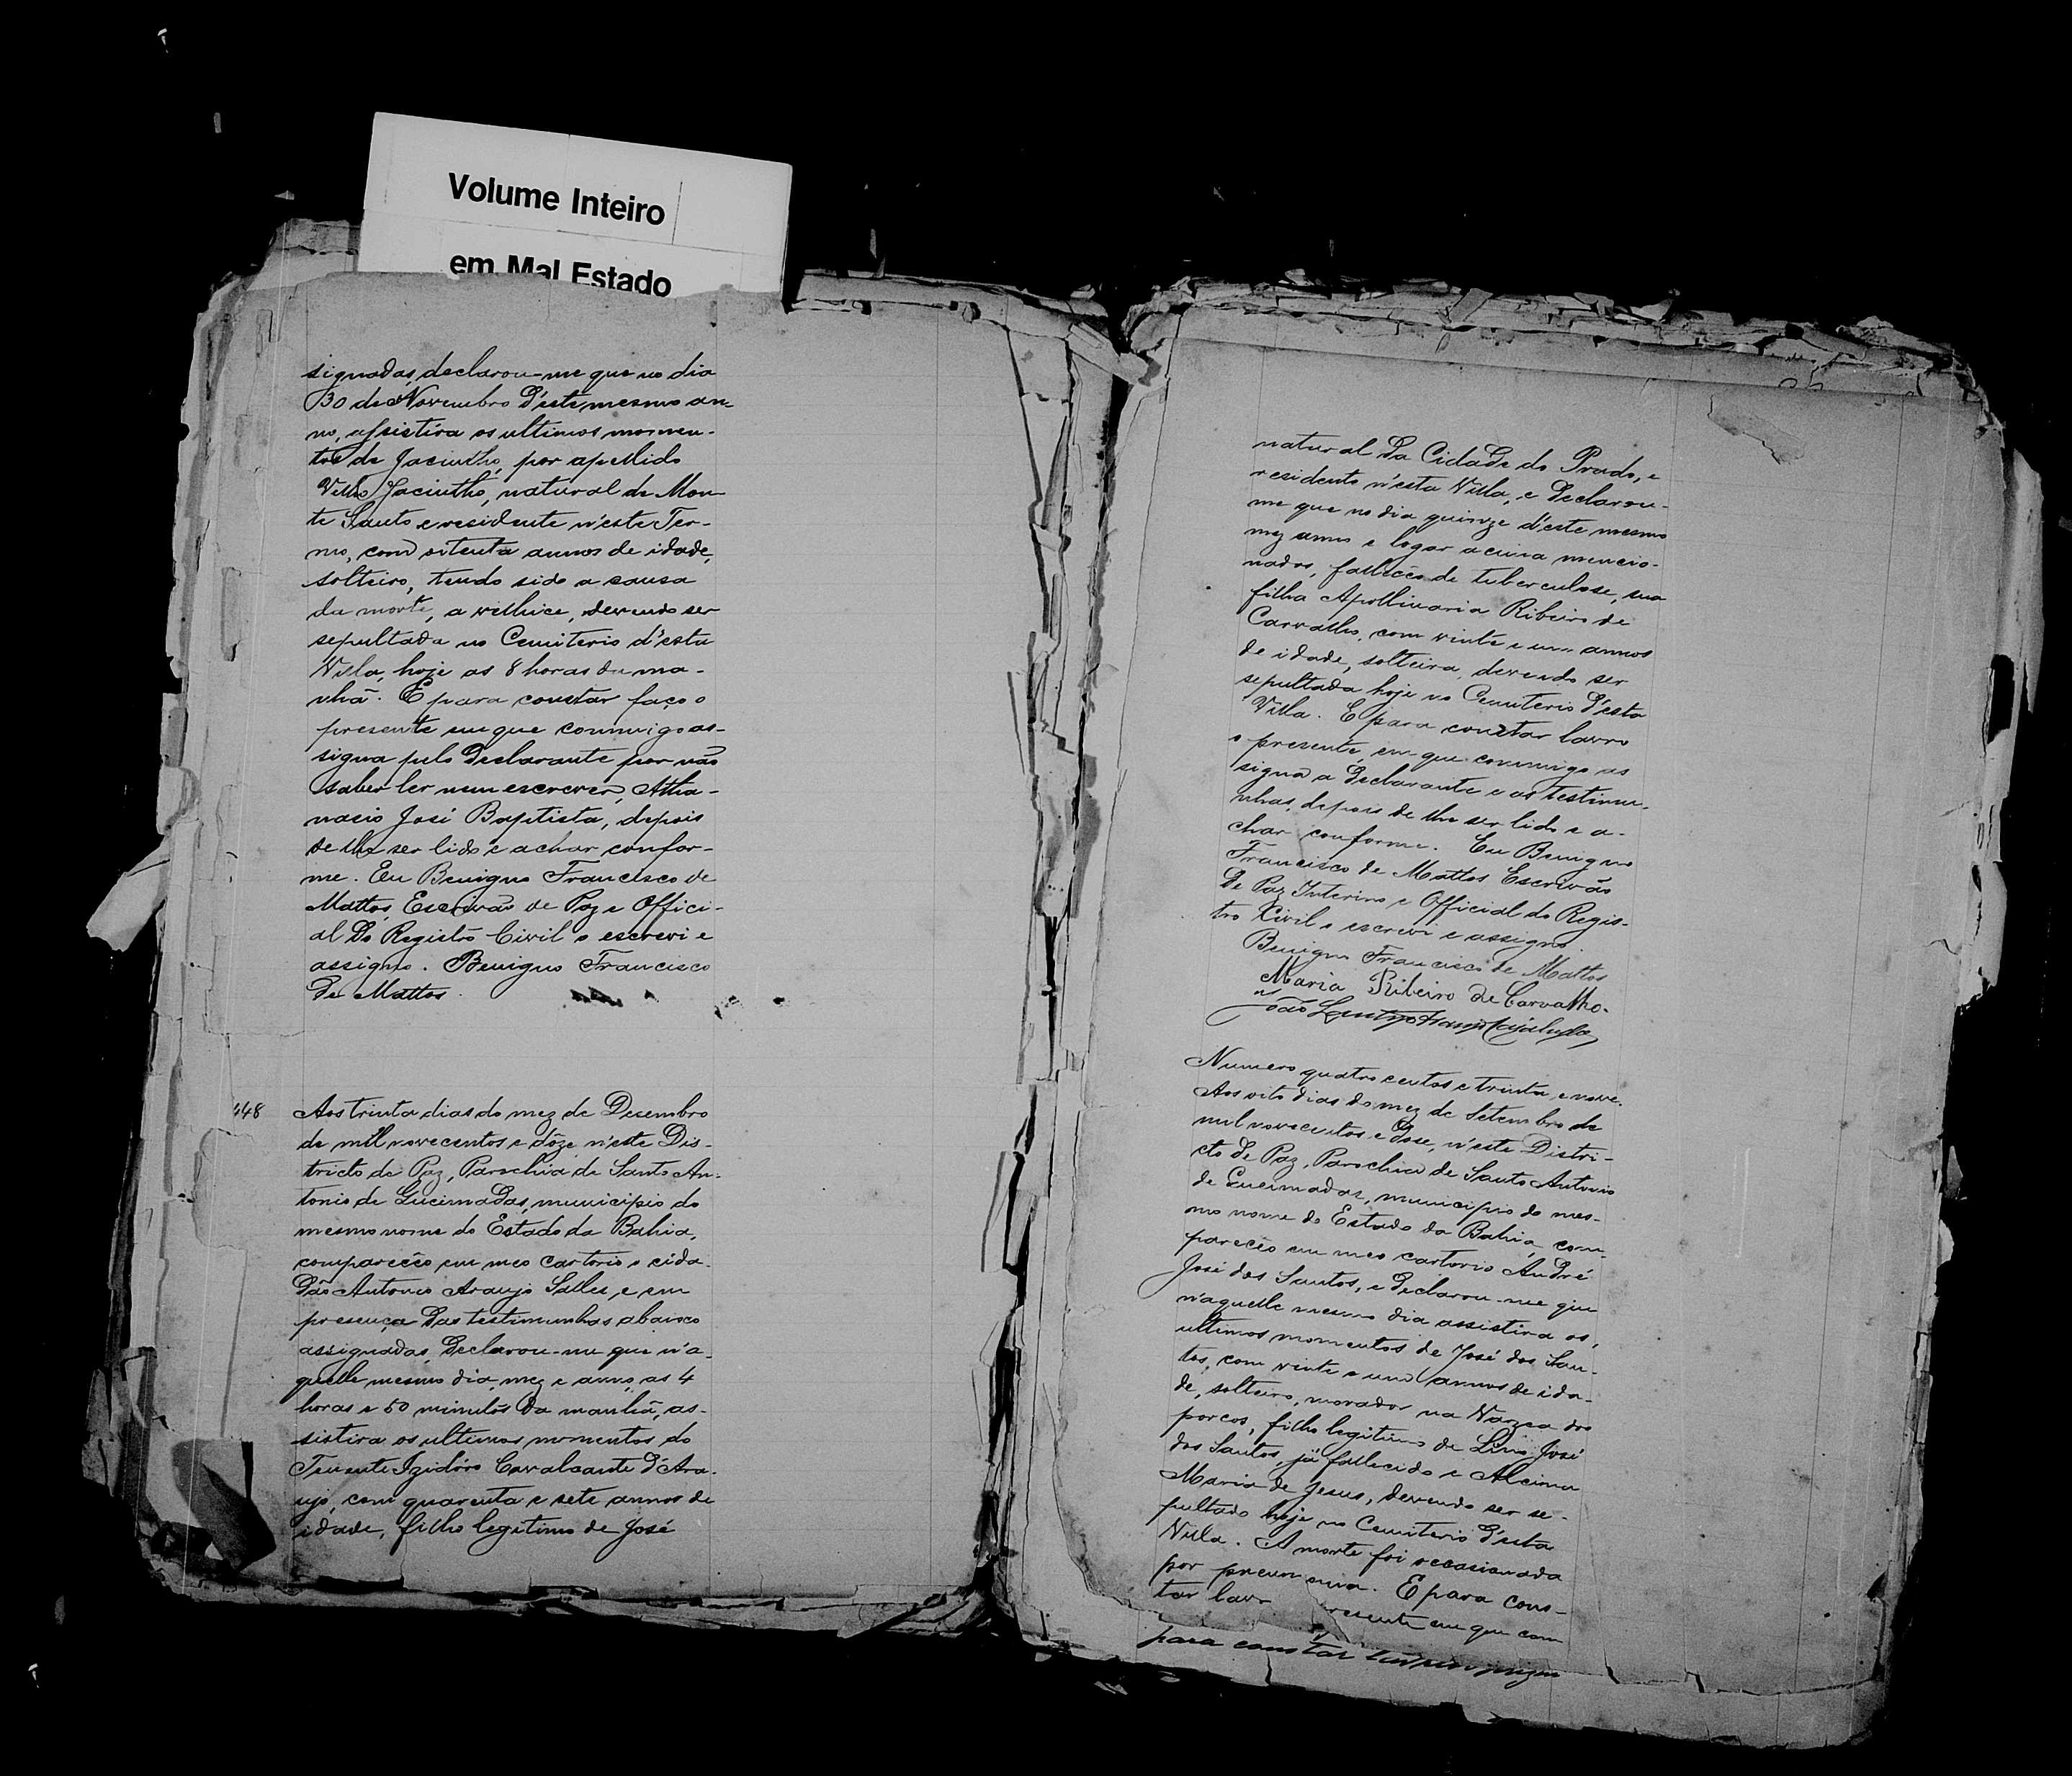 Volume Inteiro
em Mal Estado
signadas, declarou-me que no dia
30 de Novembro d'este mesmo an-
no, assistira os ultimos momen-
tos de Jacintho, por apellido
Velho Jacintho, natural de Mon-
te Santo e residente n'este Ter-
mo, com oitenta annos de idade,
solteiro, tendo sido a causa
da morte, a velhice, devendo ser
sepultada no Cemiterio d'esta
Villa, hoje as 8 horas da ma-
nhã. E para constar faço o
presente em que commigo as-
signa pelo Declarante por não
saber ler nem escrever, Atha-
nasio José Baptista, depois
de lhe ser lido e achar confor-
me. Eu Benigno Francisco de
Mattos, Escrivão de Paz e Offici-
al do Registro Civil o escrevi e
assigno. Benigno Francisco
De Mattos.
448
Aos trinta dias do mez de Desembro
de mil novecentos e dôze n'este Dis-
tricto de Paz, Parochia de Santo An-
tonio de Queimadas, municipio do
mesmo nome do Estado da Bahia,
compareceo em meo cartorio o cida-
dão Antonio Araujo Salles, e em
presença das testimunhas abaixo
assignadas, declarou-me que n'a-
quelle mesmo dia, mez e anno, as 4
horas e 50 minutos da manhã, as-
sistira os ultimos momentos do
Tenente Izidóro Cavalcante d'Ara-
ujo, com quarenta e sete annos de
idade, filho legitimo de José
natural da Cidade do Prado, e
residente n'esta Villa, e declarou-
me que no dia quinze d'este mesmo
mez anno e logar acima mencio-
nados, falleceo de tuberculose, sua
filha Apollinaria Ribeiro de
Carvalho, com vinte e um annos
de idade, solteira, devendo ser
sepultada hoje no Cemiterio d'esta
Villa. E para constar lavro
o presente, em que commigo as
signa a declarante e as testimu-
nhas, depois de lhe ser lido e a-
char conforme. Eu Benigno
Francisco de Mattos Escrivão
de Paz Interino e Official do Regis-
tro Civil o escrevi e assigno.
Benigno Francisco de Mattos
Maria Ribeiro de Carvalho.
João
Numero quatro centos e trinta e nove.
Aos oito dias do mez de Setembro de
mil novecentos e dose, n'este Distri-
cto de Paz, Parochia de Santo Antonio
de Queimadas, municipio do mes-
mo nome do Estado da Bahia, com-
pareceo em meo cartorio André
José dos Santos, e declarou-me que
n'aquelle mesmo dia assistira os
ultimos momentos de José dos San-
tos, com vinte e um annos de ida-
de, solteiro, morador na Varzea dos
porcos, filho legitimo de Lino José
dos Santos, já fallecido e Alcima
Maria de Jesus, devendo ser se-
pultado hoje no Cemiterio d'esta
Villa. A morte foi occasionada
por pneumonia. E para cons-
tar lavr resente em que com
para constar